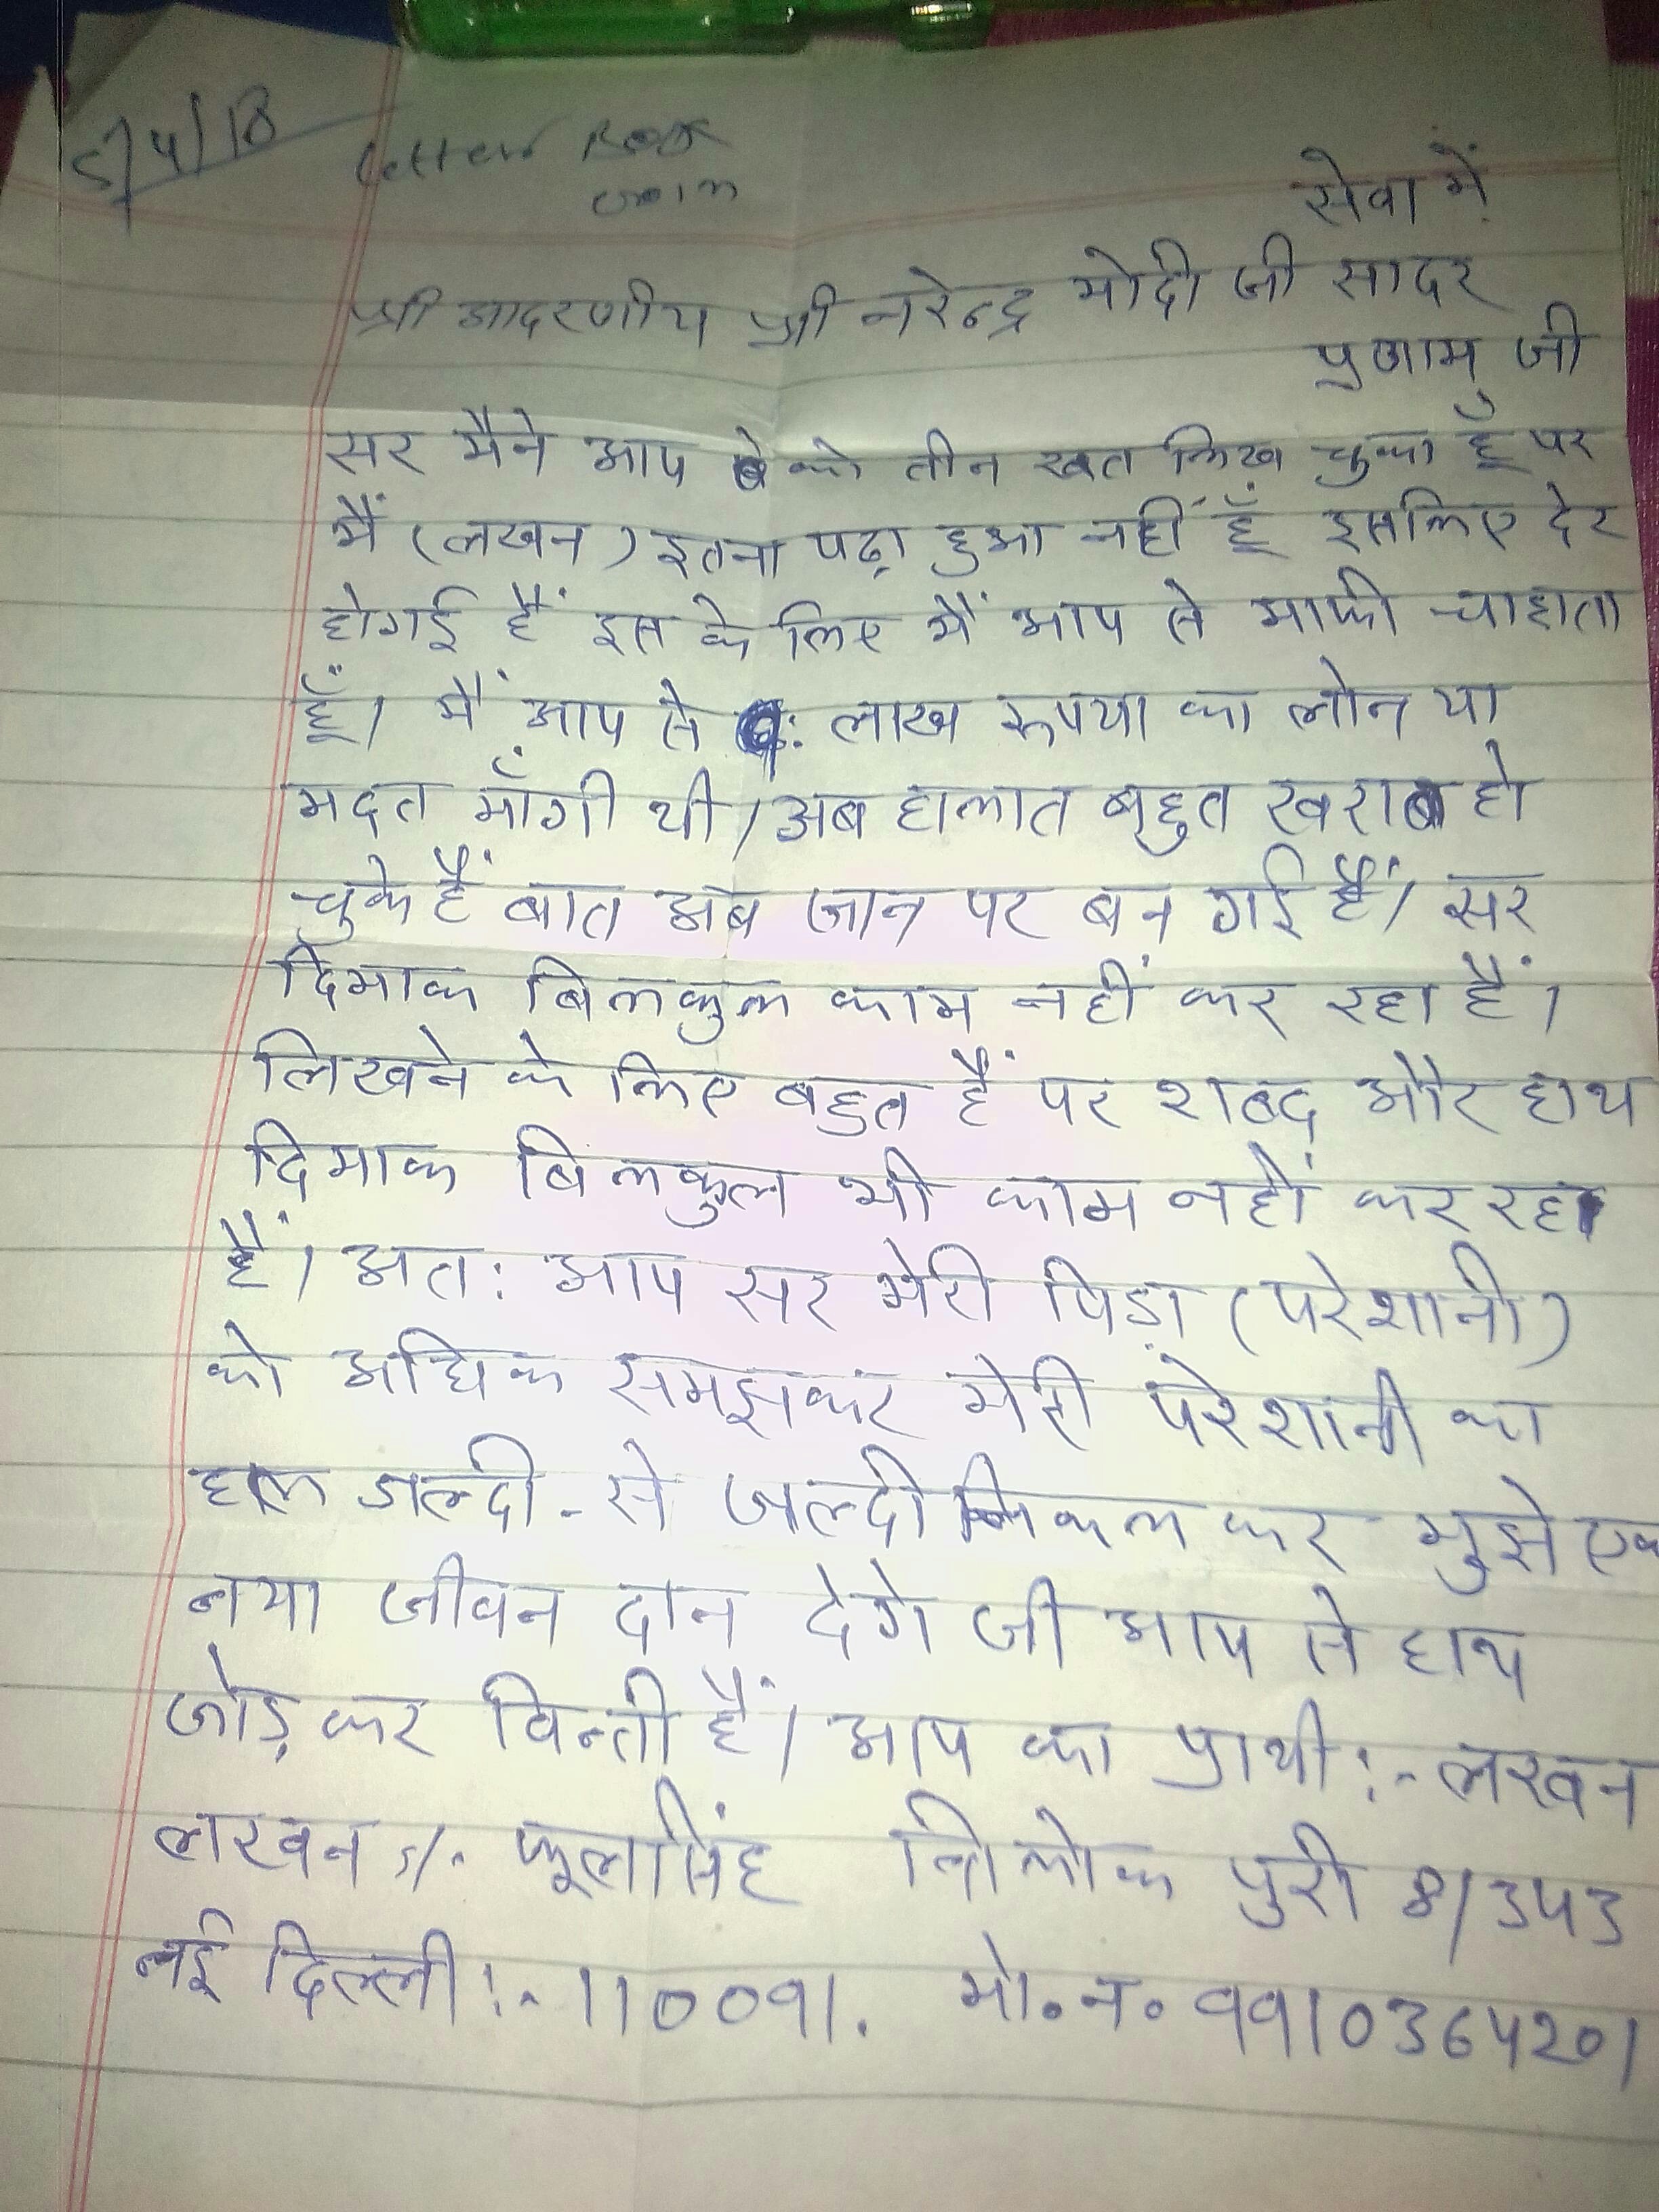 5/4/18
सेवा में
श्री आदरणीय श्री नरेन्द्र मोदी जी सादर
प्रणाम जी
सर मैने आप को तीन खत लिख चुका हूँ पर
मैं (लखन) इतना पढ़ा हुआ नहीं हूँ इसलिए देर
होगई हैं इस के लिए मैं आप से माफी चाहाता
हूँ। मैं आप से लाख रूपया का लोन या
मदत माँगी थी। अब हालात बहुत खराब हो
चुके हैं बात अब जान पर बन गई हैं। सर
दिमाक बिलकुल काम नहीं कर रहा हैं।
लिखने के लिए बहुत हैं पर शब्द और हाथ
दिमाक बिलकुल भी काम नहीं कर रहा
हैं। अत: आप सर मेरी पिड़ा (परेशानी)
को अधिक समझकर मेरी परेशानी का
हल जल्दी-से जल्दी निकल कर मुझे एक
नया जीवन दान देगे जी आप से हाथ
जोड़ कर विन्ती हैं। आप का प्राथी:- लखन
लखन S/- फूलसिंह त्रिलोक पुरी 8/343
नई दिल्ली:- 110091. मो.न. 9910364201